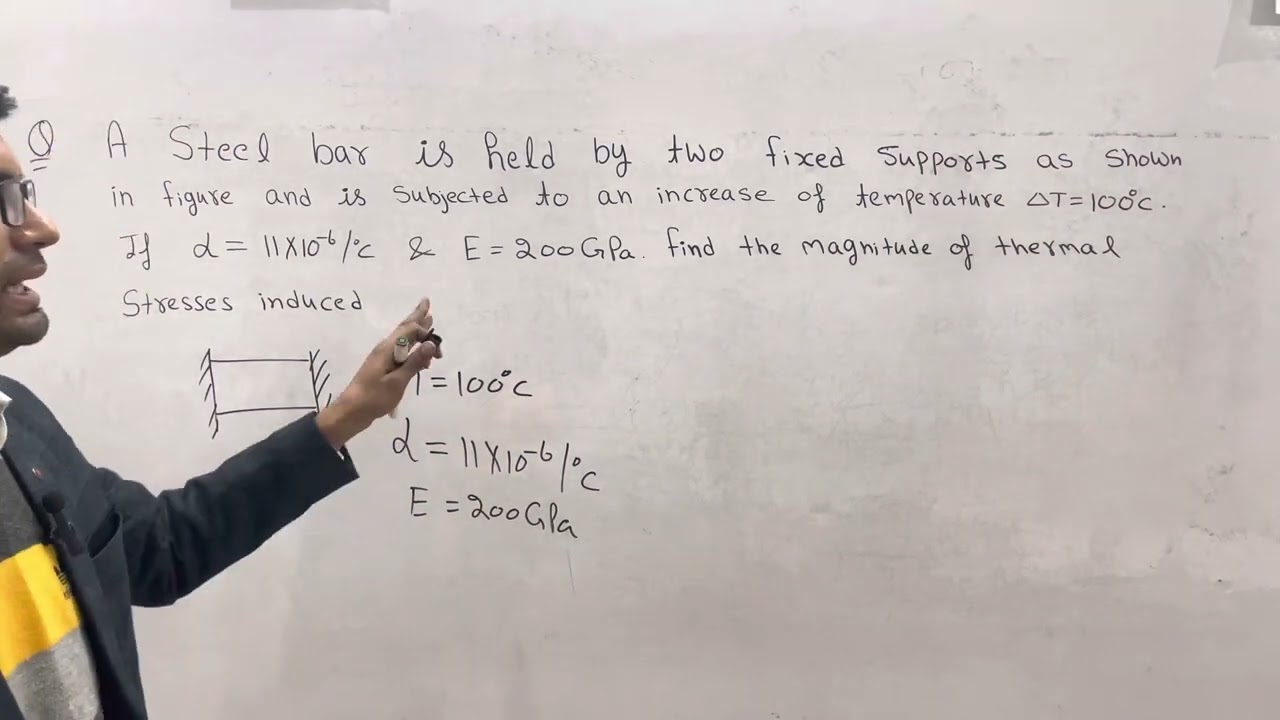 Q A Steel bar is held by two fixed supports as shown
in figure and is subjected to an increase of temperature ΔT=100°C.
If α = 11×10⁻⁶/°C & E = 200GPa. find the magnitude of thermal
Stresses induced
T = 100°C
α = 11×10⁻⁶/°C
E = 200GPa